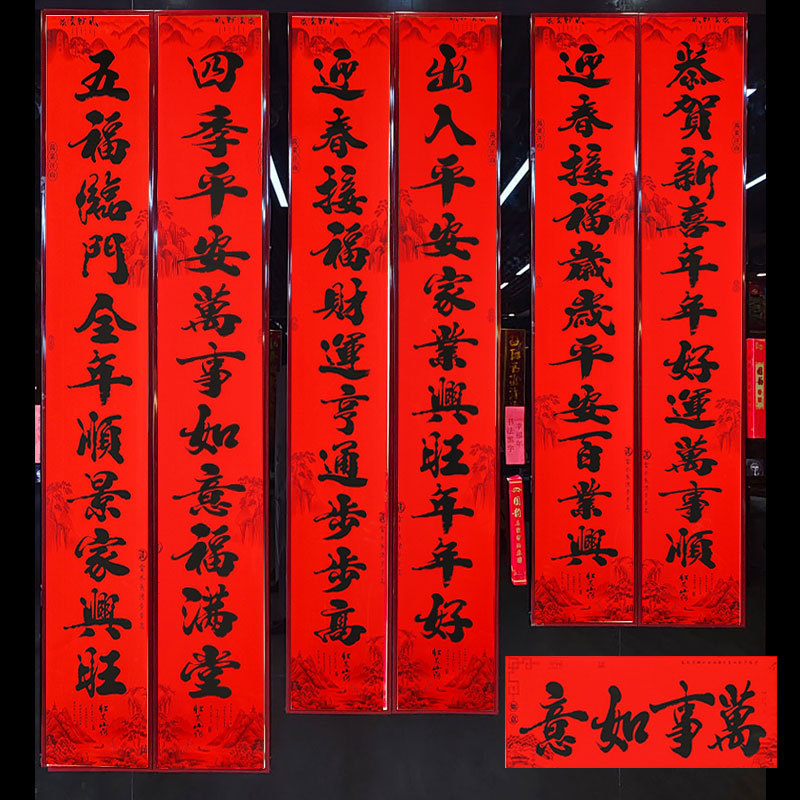 恭賀新喜年年好運萬事順
迎春接福歲歲平安百業興
出入平安家業興旺年年好
迎春接福財運亨通步步高
四季平安萬事如意福满堂
五福臨門全年順景家興旺
萬事如意